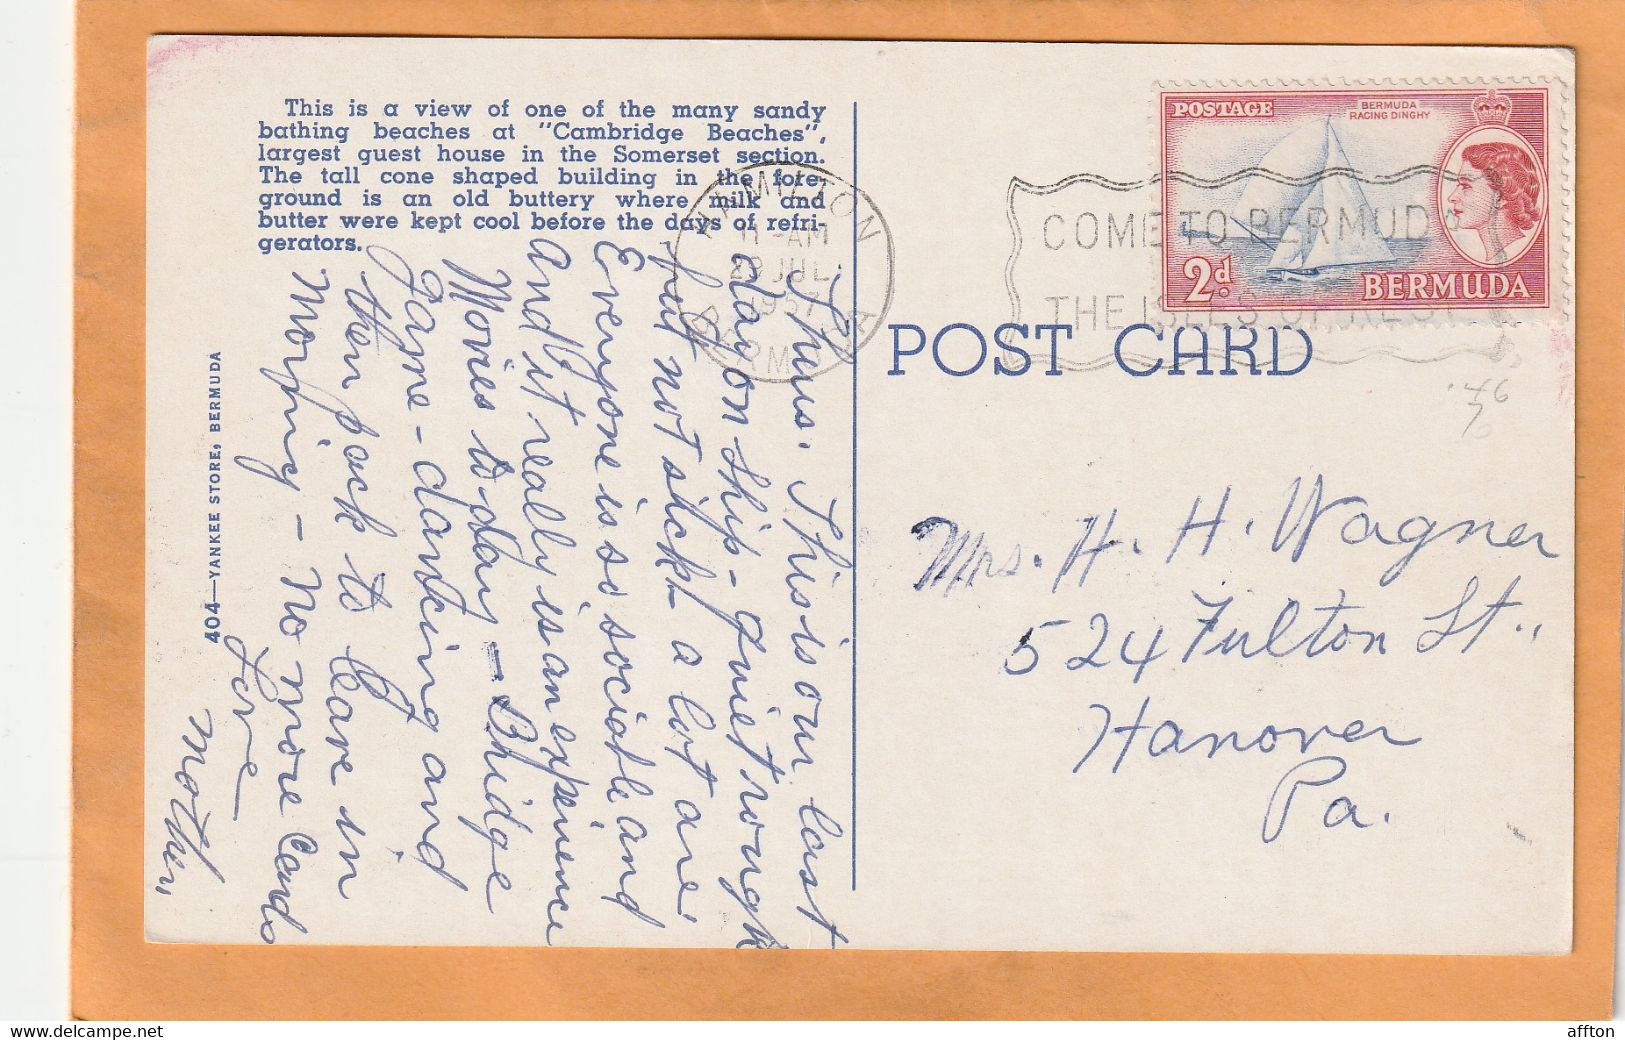 This is a view of one of the many sandy
bathing beaches at "Cambridge Beaches",
largest guest house in the Somerset section.
The tall cone shaped building in the fore-
ground is an old buttery where milk and
butter were kept cool before the days of refri-
gerators.
404—YANKEE STORE, BERMUDA
Thurs. This is our last
day on ship - quiet rough
but not sick - a lot are.
Everyone is so sociable and
and it really is an experience
Movies to day - Bridge
game - dancing and
then pack to leave in
Morning - No more Cards
Love
Mother,,
HAMILTON
11 -AM
29 JUL
1957
BERMUDA
COME TO BERMUDA
THE ISLES OF REST
POSTAGE
BERMUDA
RACING DINGHY
2d.
BERMUDA
POST CARD
.46
Mrs. H. H. Wagner
524 Fulton St.,
Hanover
Pa.
affton